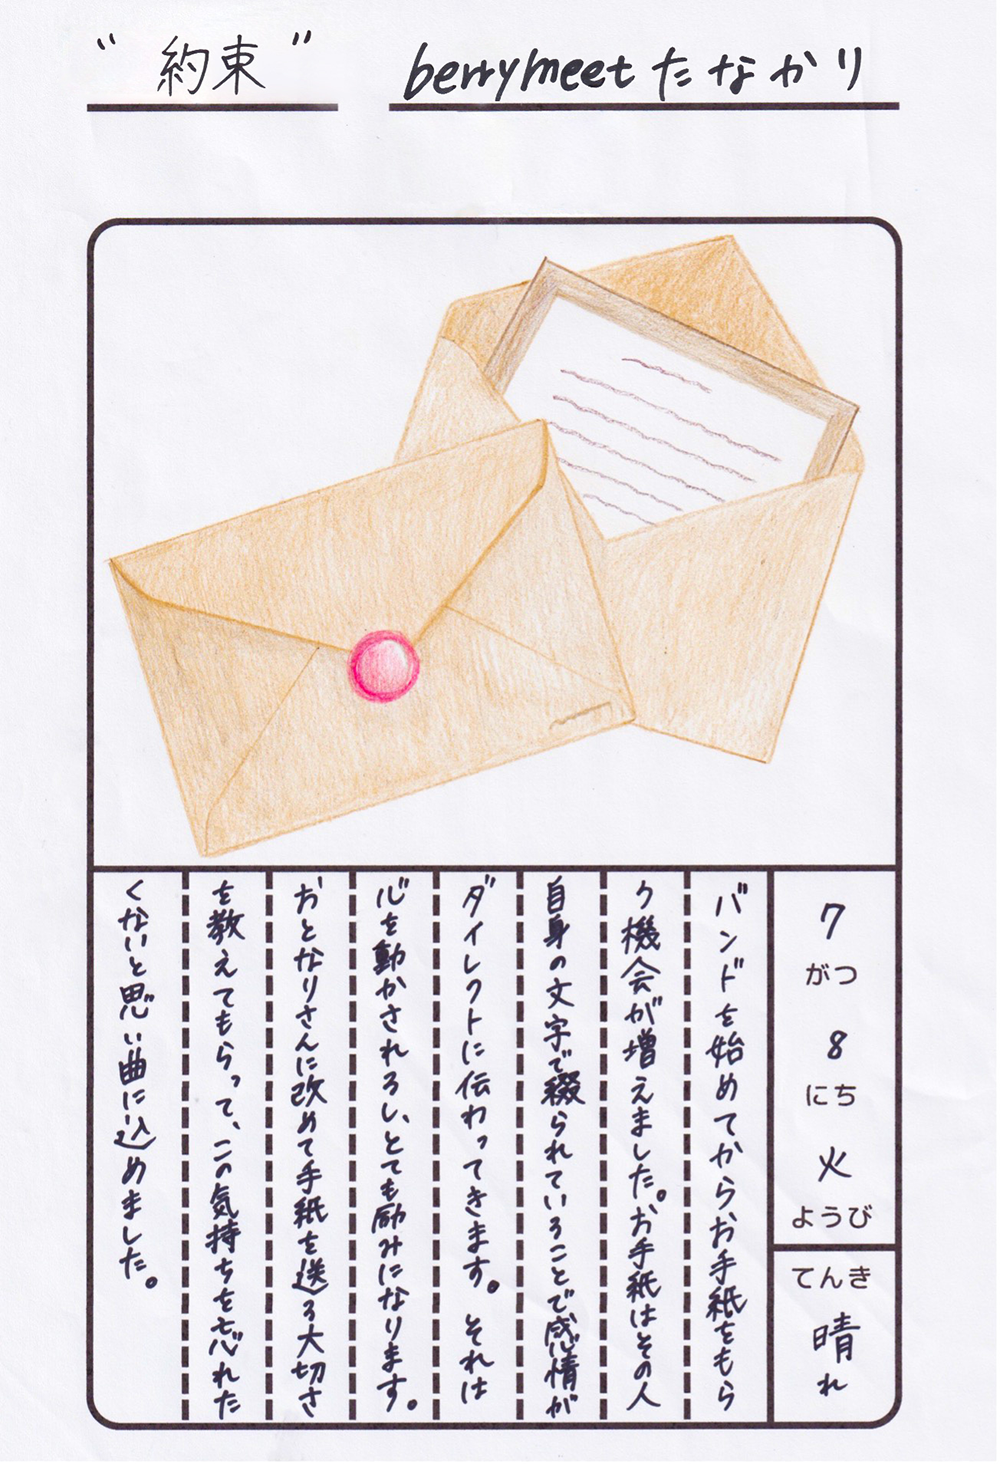 ”約束”
berrymeetたなかり
7
がつ
8
にち
火
ようび
てんき
晴れ
バンドを始めてからお手紙をもら
う機会が増えました。お手紙はその人
自身の文字で綴られていることで感情が
ダイレクトに伝わってきます。それは
心を動かされるし、とても励みになります。
おとなりさんに改めて手紙を送る大切さ
を教えてもらって、この気持ちを忘れた
くないと思い曲に込めました。